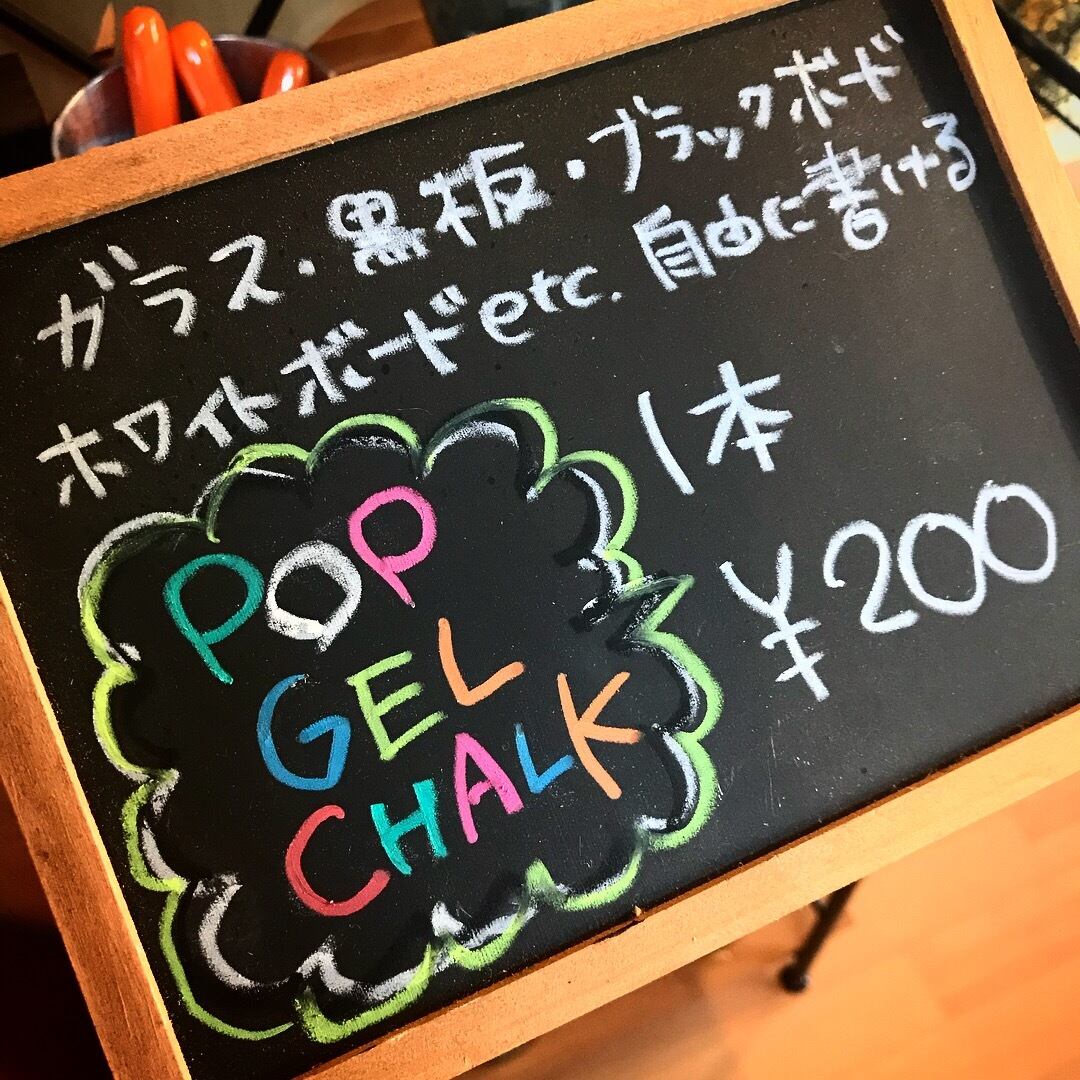 ガラス・黒板・ブラックボード
ホワイトボードetc. 自由に書ける
1本
¥200
POP
GEL
CHALK